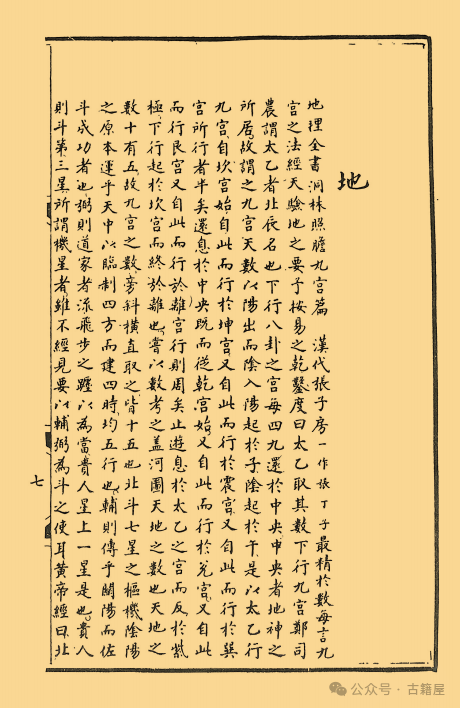 地
地理全書洞林照膽九宮篇　漢代張子房一作張丁子最精於數每言九
宮之法經天驗地之要予按易之乾鑿度曰太乙取其數下行九宮鄭司
農謂太乙者北辰名也下行八卦之宮每四九還於中央中央者地神之
所居故謂之九宮天數以陽出而陰入陽起於子陰起於午是以太乙行
九宮自坎宮始自此而行於坤宮又自此而行於震宮又自此而行於巽
宮所行者半矣還息於中央既而從乾宮始又自此而行於兌宮又自此
而行艮宮又自此而行於離宮行則周矣止遊息於太乙之宮而反於紫
極下行起於坎宮而終於離也嘗以數考之蓋河圖天地之數也天地之
數十有五故九宮之數旁斜橫直取之皆十五也北斗七星之樞機陰陽
之原本運乎天中以臨制四方而建四時均五行也輔則傳乎闓陽而佐
斗成功者也弼則道家者流飛步之躔以為當貴人星上一星是也貴人
則斗第三星所謂機星者雖不經見要以輔弼為斗之使耳黃帝經曰北
七
公众号·古籍屋